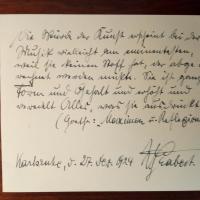 Die Würde der Kunst erscheint bei der
Musik vielleicht am eminentesten,
weil sie keinen Stoff hat, der abge-
rechnet werden müßte. Sie ist ganz
Form und Gehalt und erhöht und
veredelt Alles, was sie ausdrückt.
(Goethe: Maximen u. Reflexionen
Karlsruhe, d. 27. 1924